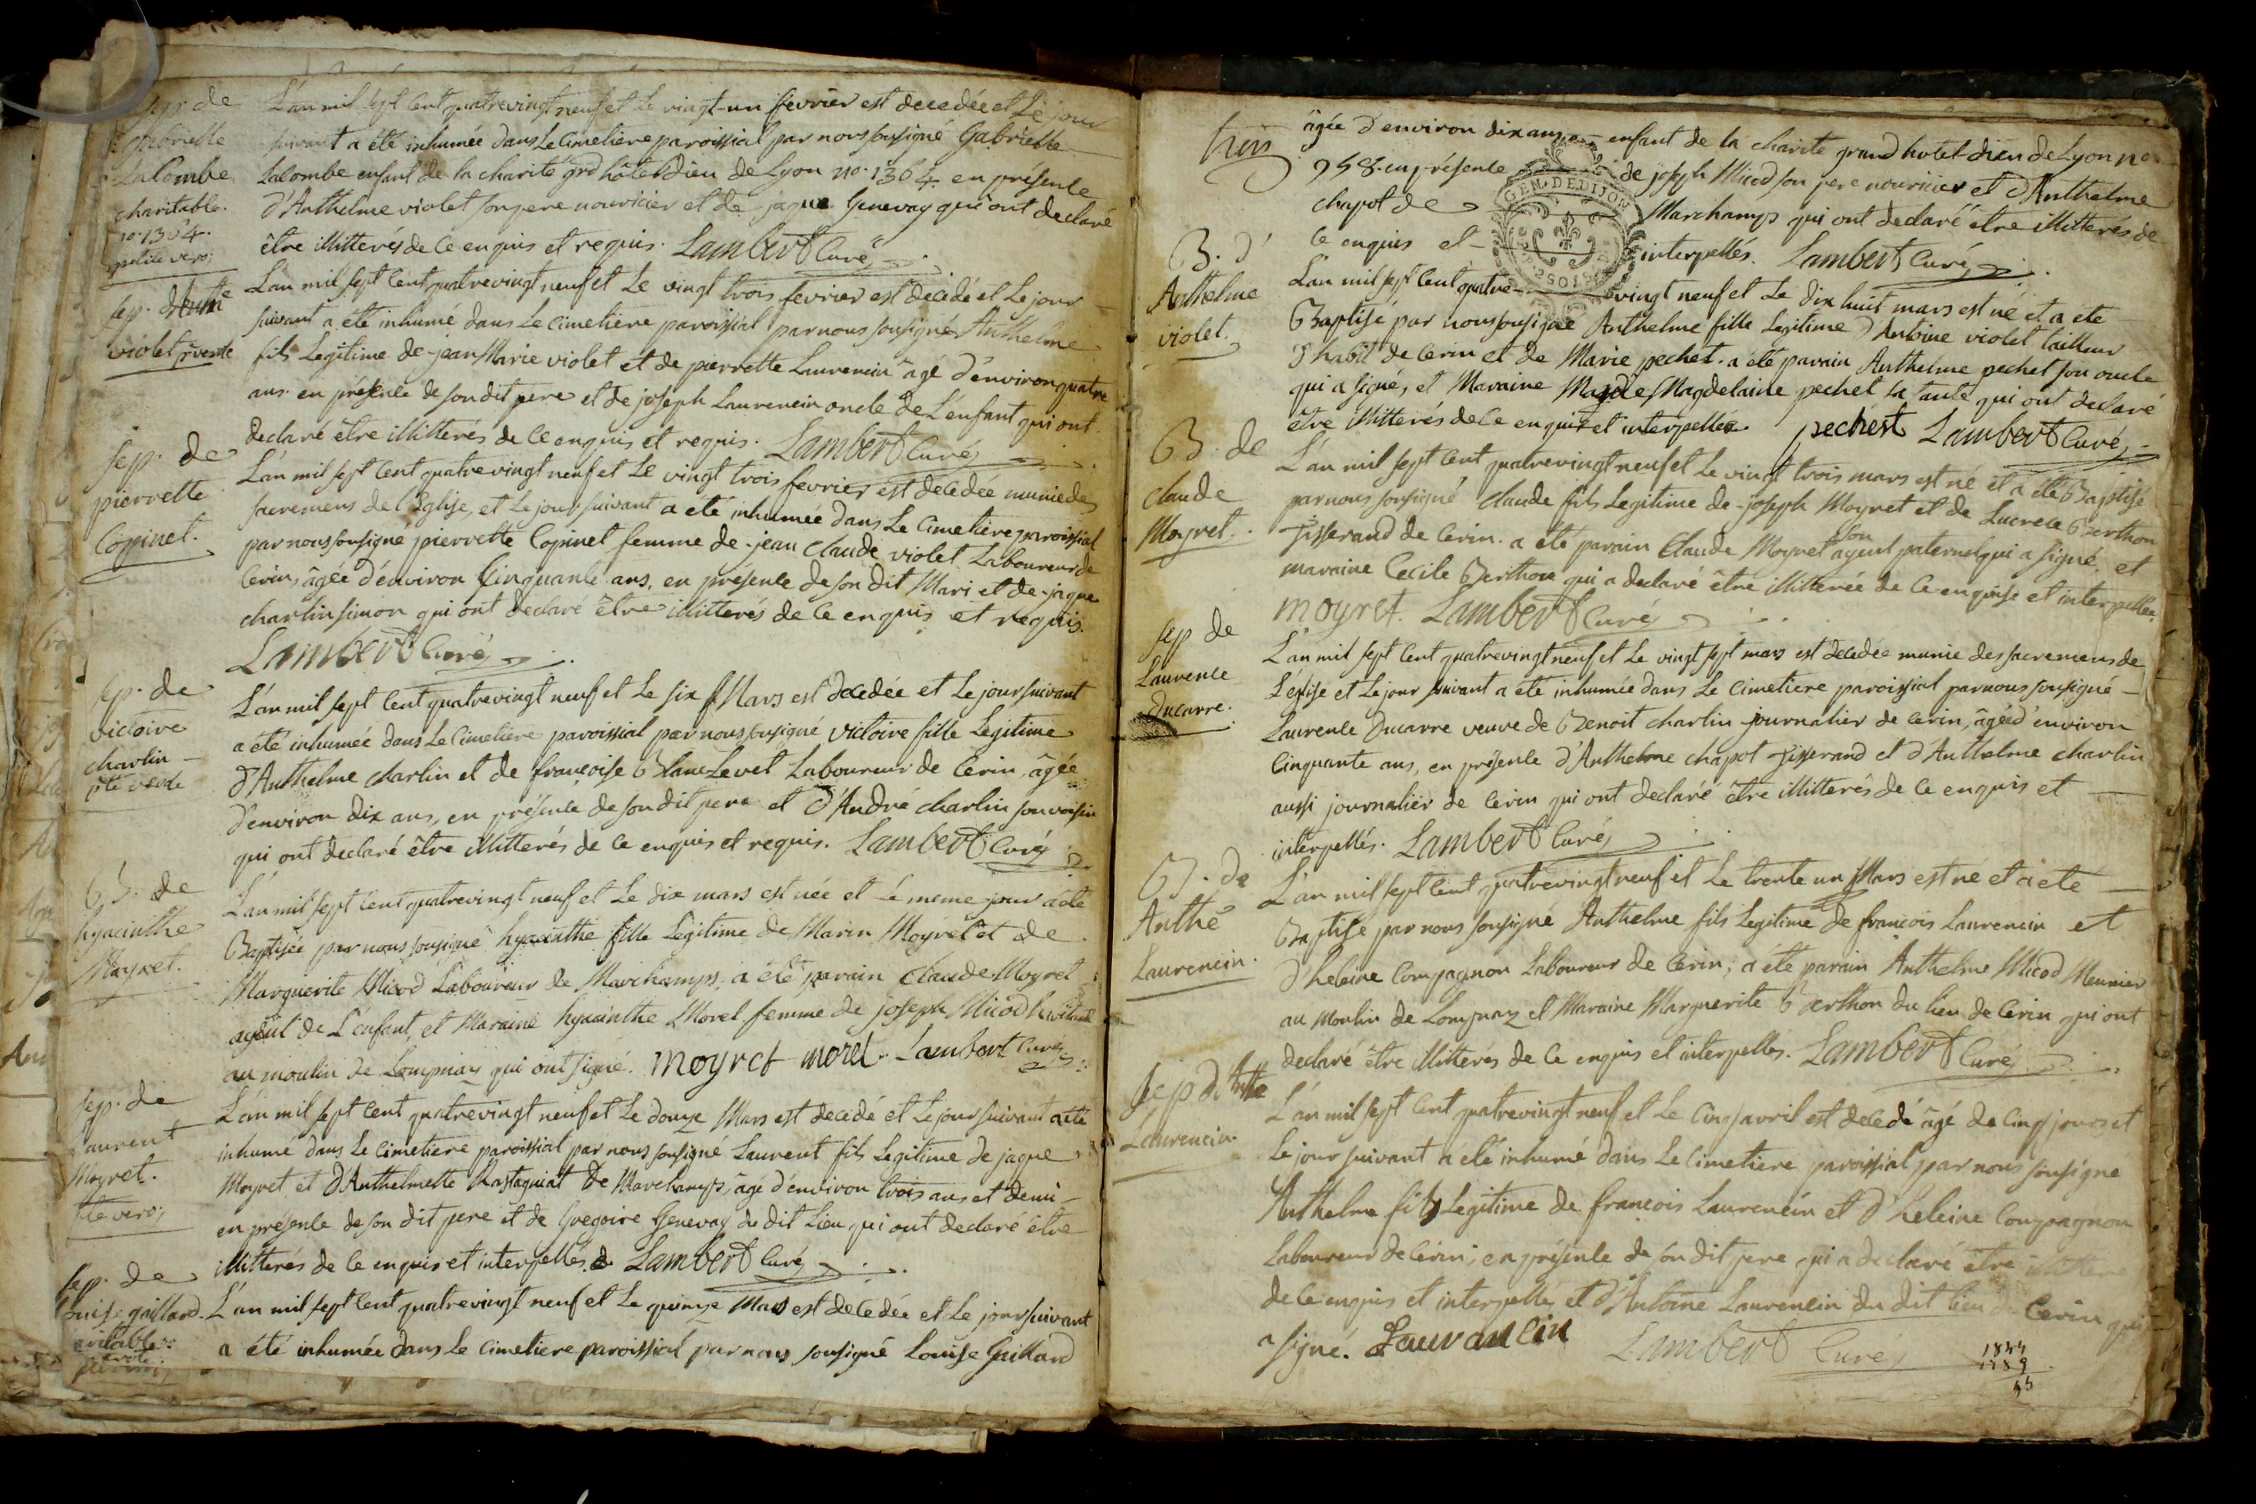 sep. de
gabrielle
Lalombe
charitable.
no. 1364.
petite verol
L'an mil sept cent quatrevingt neuf et le vingt-un fevrier est decedée et le jour
suivant a été inhumée dans le cimetiere paroissial par nous sousigné Gabrielle
Lalombe enfant de la charité grd hôtel Dieu de Lyon no. 1364. en présence
d'Anthelme violet son pere nouricier et de jaque Genevay qui ont declaré
être illitterés de ce enquis et requis. Lambert Curé
sep. d'Anthe
violet
L'an mil sept cent quatrevingt neuf et le vingt trois fevrier est decedé et le jour
suivant a été inhumé dans le cimetiere paroissial par nous sousigné Anthelme
fils Legitime de jean Marie violet et de pierrette Laurencin âgé d'environ quatre
ans en présence de son dit pere et de joseph Laurencin oncle de L'enfant qui ont
declaré être illitterés de ce enquis et requis. Lambert Curé
sep. de
pierrette
Copinet.
L'an mil sept cent quatrevingt neuf et le vingt trois fevrier est decedée munie des
sacremens de l'Eglise, et le jour suivant a été inhumée dans le cimetiere paroissial
par nous sousigné pierrette Copinet femme de jean claude violet Laboureur de
Cerin, âgée d'environ Cinquante ans, en présence de son dit Mari et de jaque
charlin simon qui ont declaré être illitterés de ce enquis et requis.
Lambert Curé
sep. de
victoire
charlin
L'an mil sept cent quatrevingt neuf et le six Mars est decedée et le jour suivant
a été inhumée dans le cimetiere paroissial par nous sousigné victoire fille Legitime
d'Anthelme charlin et de françoise Blanc Levet Laboureur de Cerin, âgée
d'environ dix ans, en présence de son dit pere et d'André charlin son voisin
qui ont declaré être illitterés de ce enquis et requis. Lambert Curé
B. de
hyacinthe
Moyret.
L'an mil sept cent quatrevingt neuf et le dix mars est née et le meme jour a été
Baptisée par nous sousigné hyacinthe fille Legitime de Marin Moyret et de
Marguerite Micod Laboureur de Marchamps; a été parain Claude Moyret
ayeul de L'enfant, et Maraine hyacinthe Morel femme de joseph Micod
au moulin de Lompnaz qui ont signé. moyret morel. Lambert Curé
sep. de
Laurent
Moyret.
L'an mil sept cent quatrevingt neuf et le douze Mars est decedé et le jour suivant a été
inhumé dans le cimetiere paroissial par nous sousigné Laurent fils Legitime de jaque
Moyret et d'Anthelmette Rastagniat de Marchamps, âgé d'environ trois ans et demi
en présence de son dit pere et de Gregoire Genevay du dit Lieu qui ont declaré être
illitterés de ce enquis et interpellés. Lambert Curé
sep. de
Louise gaillard.
L'an mil sept cent quatrevingt neuf et le quinze Mars est decedée et le jour suivant
a été inhumée dans le cimetiere paroissial par nous sousigné Louise Gaillard
âgée d'environ dix ans, enfant de la charité grand hotel dieu de Lyon no.
958. en présence de joseph Micod son pere nouricier et d'Anthelme
chapot de Marchamps qui ont declaré être illitterés de
ce enquis et interpellés. Lambert Curé
GEN. DE DIJON
B. d'
Anthelme
violet.
L'an mil sept cent quatre vingt neuf et le dix huit mars est né et a été
Baptisé par nous sousigné Anthelme fille Legitime d'Antoine violet tailleur
d'habit de Cerin et de Marie pechet. a été parain Anthelme pechet son oncle
qui a signé, et Maraine Magdelaine pechet sa tante qui ont declaré
être illitterés de ce enquis et interpellés. pechest Lambert Curé
B. de
Claude
Moyret.
L'an mil sept cent quatrevingt neuf et le vingt trois mars est né et a été Baptisé
par nous sousigné claude fils Legitime de joseph Moyret et de Lucrece Berthon
Tisserand de Cerin. a été parain Claude Moyret son ayeul paternel qui a signé, et
maraine Cecile Berthon qui a declaré être illitterée de ce enquise et interpellée.
moyret. Lambert Curé
sep. de
Laurence
Ducarre.
L'an mil sept cent quatrevingt neuf et le vingt sept mars est decedée munie des sacremens de
L'église et le jour suivant a été inhumée dans le cimetiere paroissial par nous sousigné
Laurence Ducarre veuve de Benoit charlin journalier de Cerin, âgée d'environ
Cinquante ans, en présence d'Anthelme chapot Tisserand et d'Anthelme charlin
aussi journalier de Cerin qui ont declaré être illitterés de ce enquis et
interpellés. Lambert Curé
B. de
Anthe
Laurencin.
L'an mil sept cent quatrevingt neuf et le trente un Mars est né et a été
Baptisé par nous sousigné Anthelme fils Legitime de francois Laurencin et
d'heleine Compagnon Laboureur de Cerin; a été parain Anthelme Micod Meunier
au Moulin de Lompnaz et Maraine Marguerite Berthon du lieu de Cerin qui ont
declaré être illitterés de ce enquis et interpellés. Lambert Curé
sep d'Anthe
Laurencin
L'an mil sept cent quatrevingt neuf et le cinq avril est decedé âgé de cinq jours et
le jour suivant a été inhumé dans le cimetiere paroissial par nous sousigné
Anthelme fils Legitime de francois Laurencin et d'heleine Compagnon
Laboureur de Cerin; en présence de son dit pere qui a declaré être
de ce enquis et interpellé et d'Antoine Laurencin du dit lieu de Cerin qui
a signé. Lauvancin Lambert Curé
1844
1789
55